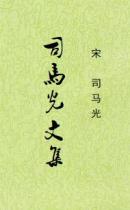 宋 司马光
司馬光文集